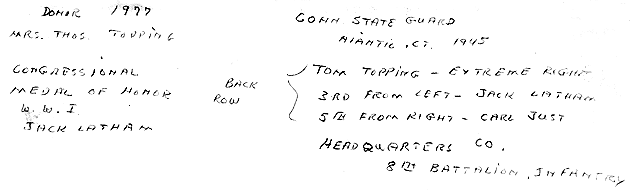 DONOR 1977
MRS. THOS. TOPPING
CONGRESSIONAL
MEDAL OF HONOR
W.W.I
JACK LATHAM
CONN STATE GUARD
NIANTIC, CT. 1945
BACK
ROW
TOM TOPPING - EXTREME RIGHT
3RD FROM LEFT - JACK LATHAM
5TH FROM RIGHT - CARL JUST
HEADQUARTERS CO.
8TH BATTALION, INFANTRY